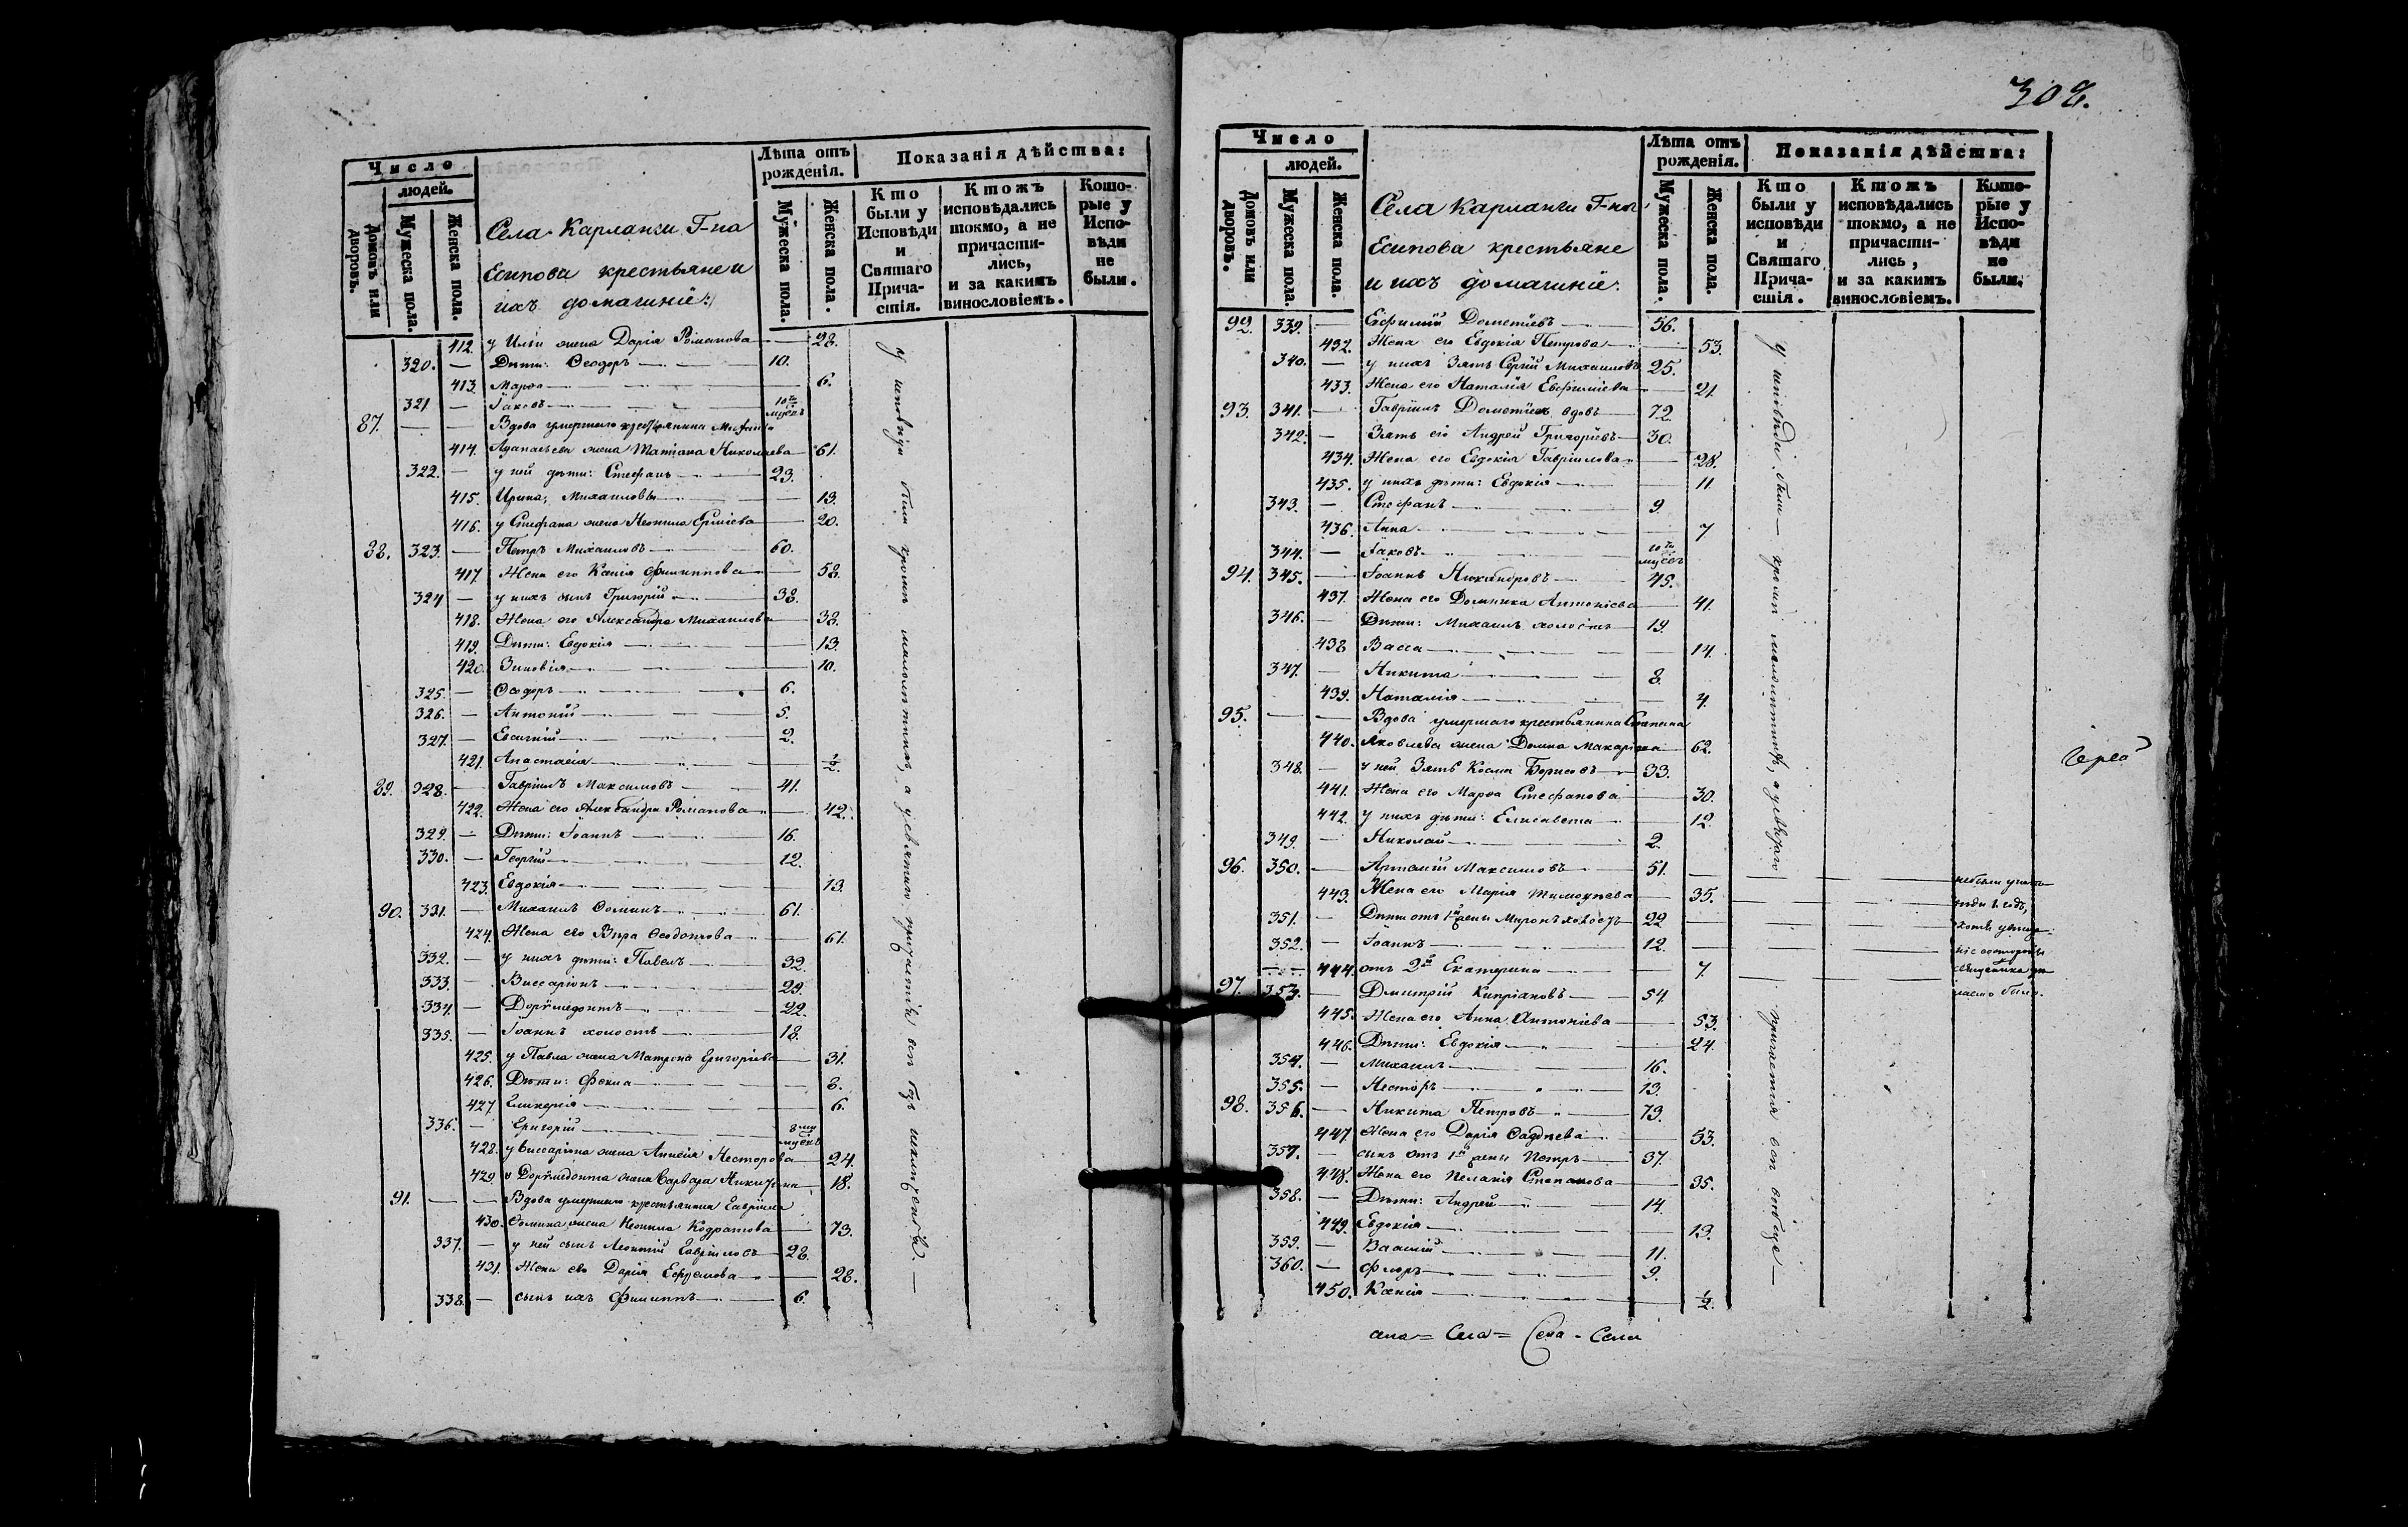 308.
Число
людей.
Домовъ или дворовъ.
Мужеска пола.
Женска пола.
Села Карланги Г-на
Есипова крестьяне и
ихъ домашніе:
Лѣта отъ рожденія.
Мужеска пола.
Женска пола.
Показанія дѣйства:
Кто были у Исповѣди и Святаго Причастія.
Ктожъ исповѣдались токмо, а не причастились, и за какимъ винословіемъ.
Которые у Исповѣди не были.
412. у Иліи жена Дарія Романова — 28.
320. — Дѣти: Ѳеодоръ — 10.
413. Марѳа — 6.
321 — Іаковъ — 10ти мцевъ
87. — — Вдова умершаго крестьянина
414. жена Татіана Николаева — 61.
322. — у ней дѣти: Стефанъ — 23.
415. Ирина, Михаиловы — 13.
416. у Стефана жена Неонила — 20.
88. 323. — Петръ Михаиловъ — 60.
417 Жена его Ксенія Филиппова — 58.
324 — у нихъ сынъ Григорій — 38.
418. Жена его Александра Михаилова — 38.
419. Дѣти: Евдокія — 13.
420. Зиновія — 10.
325. — Ѳеодоръ — 6.
326. — Антоній — 5.
327. — Евсигній — 2.
421. Анастасія — ½.
89. 328. — Гавріилъ Максимовъ — 41.
422. Жена его Александра Романова — 42.
329. — Дѣти: Іоаннъ — 16.
330. — Георгій — 12.
423. Евдокія — 13.
90. 331. — Михаилъ Ѳоминъ — 61.
424. Жена его Вѣра Ѳеодотова — 61.
332. — у нихъ дѣти: Павелъ — 32.
333. — Виссаріонъ — 29.
334. — Доримедонтъ — 22.
335. — Іоаннъ холостъ — 18.
425. у Павла жена Матрона Григоріева — 31.
426. Дѣти: Фекла — 8.
427 Гликерія — 6.
336. — Григорій — 8ми мцевъ
428. у Виссаріона жена Анисія Несторова — 24.
429. у Доримедонта жена Варвара Никитина — 18.
91. — — Вдова умершаго крестьянина Гавріила
430. Ѳомина жена Неонила Кодратова — 73.
337. — у ней сынъ Леонтій Гавріиловъ — 28.
431. Жена его Дарія Ефремова — 28.
338. — сынъ ихъ Филиппъ — 6.
у исповѣди были кромѣ малолѣтнихъ, а у святаго причастія
Число
людей.
Домовъ или дворовъ.
Мужеска пола.
Женска пола.
Села Карланги Г-на
Есипова крестьяне
и ихъ домашніе.
Лѣта отъ рожденія.
Мужеска пола.
Женска пола.
Показанія дѣйства:
Кто были у исповѣди и Святаго Причастія.
Ктожъ исповѣдались токмо, а не причастились, и за какимъ винословіемъ.
Которые у Исповѣди не были.
92. 339. — Евфимій Дометіевъ — 56.
432. Жена его Евдокія Петрова — 53.
340. — у нихъ Зять Сергій Михаиловъ 25.
433. Жена его Наталія Евфиміева — 21.
93. 341. — Гавріилъ Дометіевъ вдовъ — 72
342. — Зять его Андрей Григоріевъ — 30.
434. Жена его Евдокія Гавріилова — 28.
435. у нихъ дѣти: Евдокія — 11
343. — Стефанъ — 9.
436. Анна — 7
344. — Іаковъ — 10ти мцевъ
94. 345. — Іоаннъ Никандровъ — 45.
437. Жена его Домника Антоніева — 41.
346. — Дѣти: Михаилъ холостъ — 19.
438 Васса — 14.
347. — Никита — 8.
439. Наталія — 4.
95. — — Вдова умершаго крестьянина Степана
440. Яковлева жена Домна Макарова — 62.
348. — у ней Зять Косма Борисовъ — 33.
441. Жена его Марѳа Стефанова — 30.
442. у нихъ дѣти: Елисавета — 12.
349. — Николай — 2.
96. 350. — Артемій Максимовъ — 51.
443. Жена его Марія Тимоѳеева — 35.
351. — Дѣти отъ 1й жены Миронъ холостъ 22
352. — Іоаннъ — 12.
444. отъ 2й Екатерина — 7.
97. 353. — Дмитрій Кипріановъ — 54.
445. Жена его Анна Антоніева — 53.
446. Дѣти: Евдокія — 24.
354. — Михаилъ — 16.
355. — Несторъ — 13.
98. 356. — Никита Петровъ — 73.
447. Жена его Дарія Ѳаддеева — 53.
357. — сынъ отъ 1й жены Петръ — 37.
448. Жена его Пелагія Степанова — 35.
358. — Дѣти: Андрей — 14.
449. Евдокія — 13.
359. — Василій — 11.
360. — Флоръ — 9.
450. Ксенія — ½.
у исповѣди были кромѣ малолѣтнихъ, а у святаго причастія
не были
хотя
со стороны
священника
было.
Іерей
села = Села = Села - Села